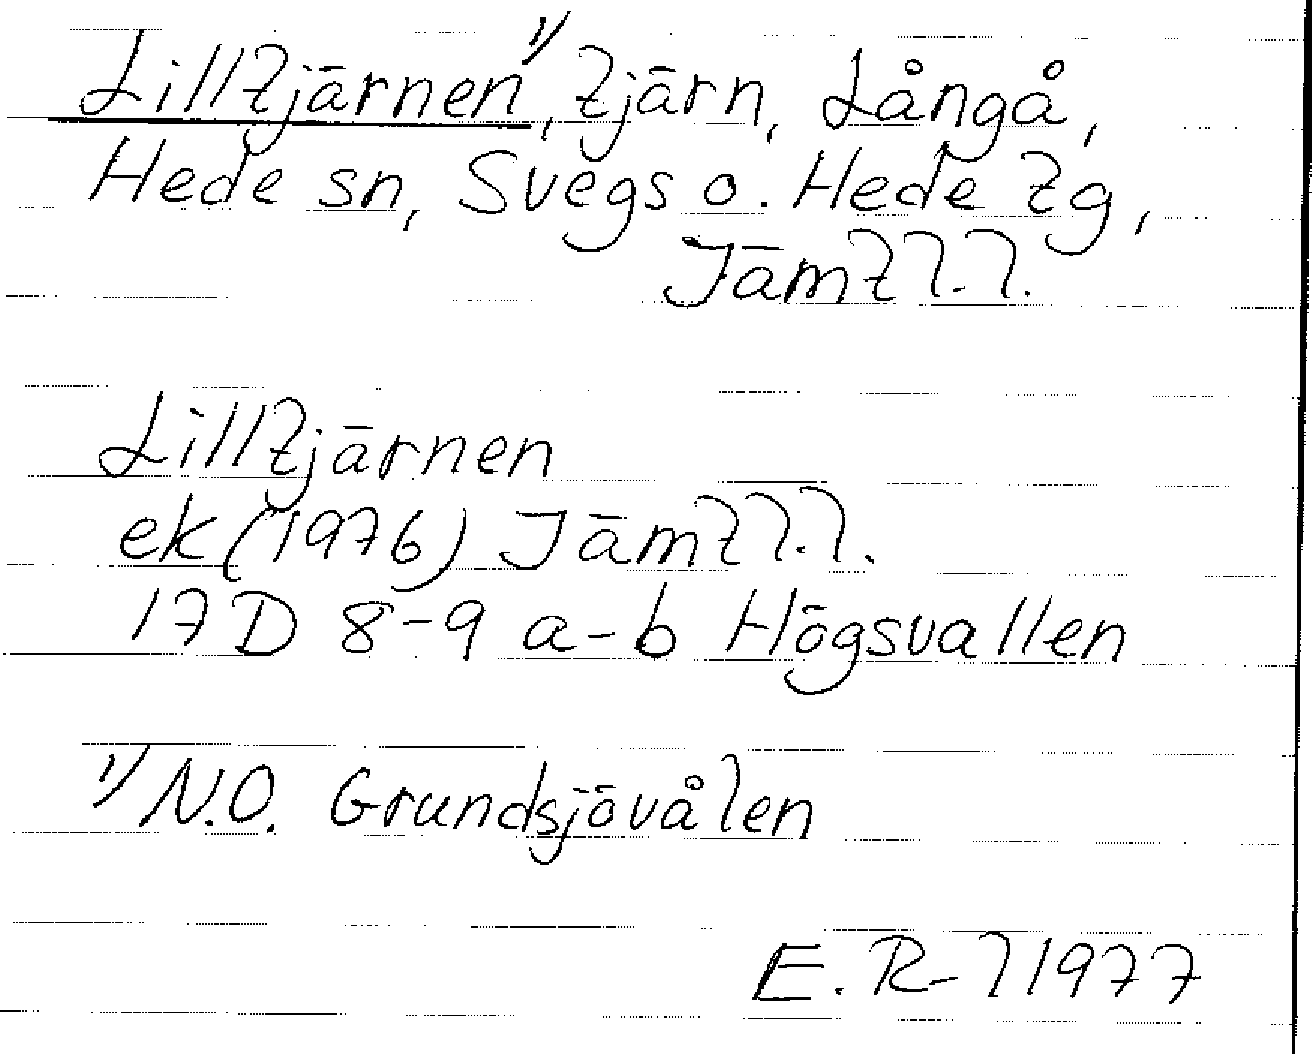 Lilltjärnen¹⁾, tjärn, Långå,
Hede sn, Svegs o. Hede tg,
Jämtl.l.
Lilltjärnen
ek (1976) Jämtl.l.
17 D 8-9 a-b Högsvallen
¹⁾ N.O. Grundsjövålen
E. R-l 1977